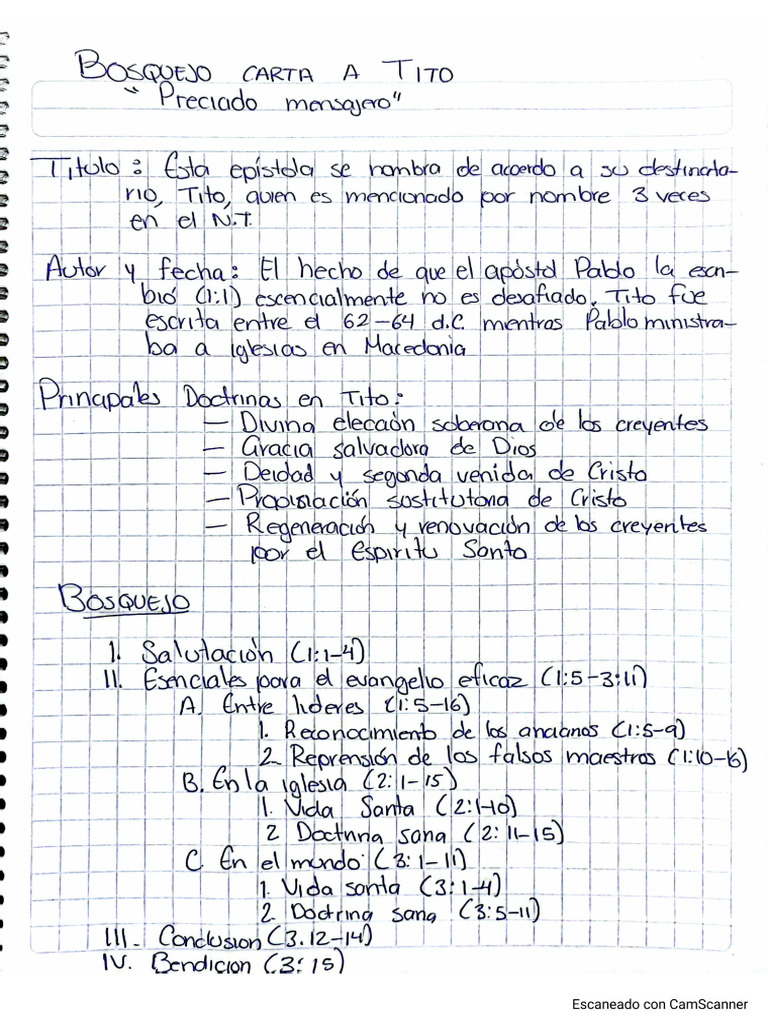 BOSQUEJO CARTA A TITO
"Preciado mensajero"
Titulo: Esta epístola se nombra de acuerdo a su destinata-
rio, Tito, quien es mencionado por nombre 3 veces
en el N.T.
Autor y fecha: El hecho de que el apóstol Pablo la escri-
bió (1:1) escencialmente no es desafiado. Tito fue
escrita entre el 62-64 d.C. mientras Pablo ministra-
ba a iglesias en Macedonia
Principales Doctrinas en Tito:
- Divina elección soberana de los creyentes
- Gracia salvadora de Dios
- Deidad y segunda venida de Cristo
- sustitutoria de Cristo
- Regeneración y renovación de los creyentes
por el Espiritu Santo
BOSQUEJO
I. Salutación (1:1-4)
II. Esenciales para el evangelio eficaz (1:5-3:11)
A. Entre lideres (1:5-16)
1. Reconocimiento de los ancianos (1:5-9)
2. Reprensión de los falsos maestros (1:10-16)
B. En la iglesia (2:1-15)
1. Vida Santa (2:1-10)
2 Doctrina sana (2:11-15)
C. En el mundo: (3:1-11)
1. Vida santa (3:1-4)
2. Doctrina sana (3:5-11)
III. Conclusion (3.12-14)
IV. Bendicion (3:15)
Escaneado con CamScanner